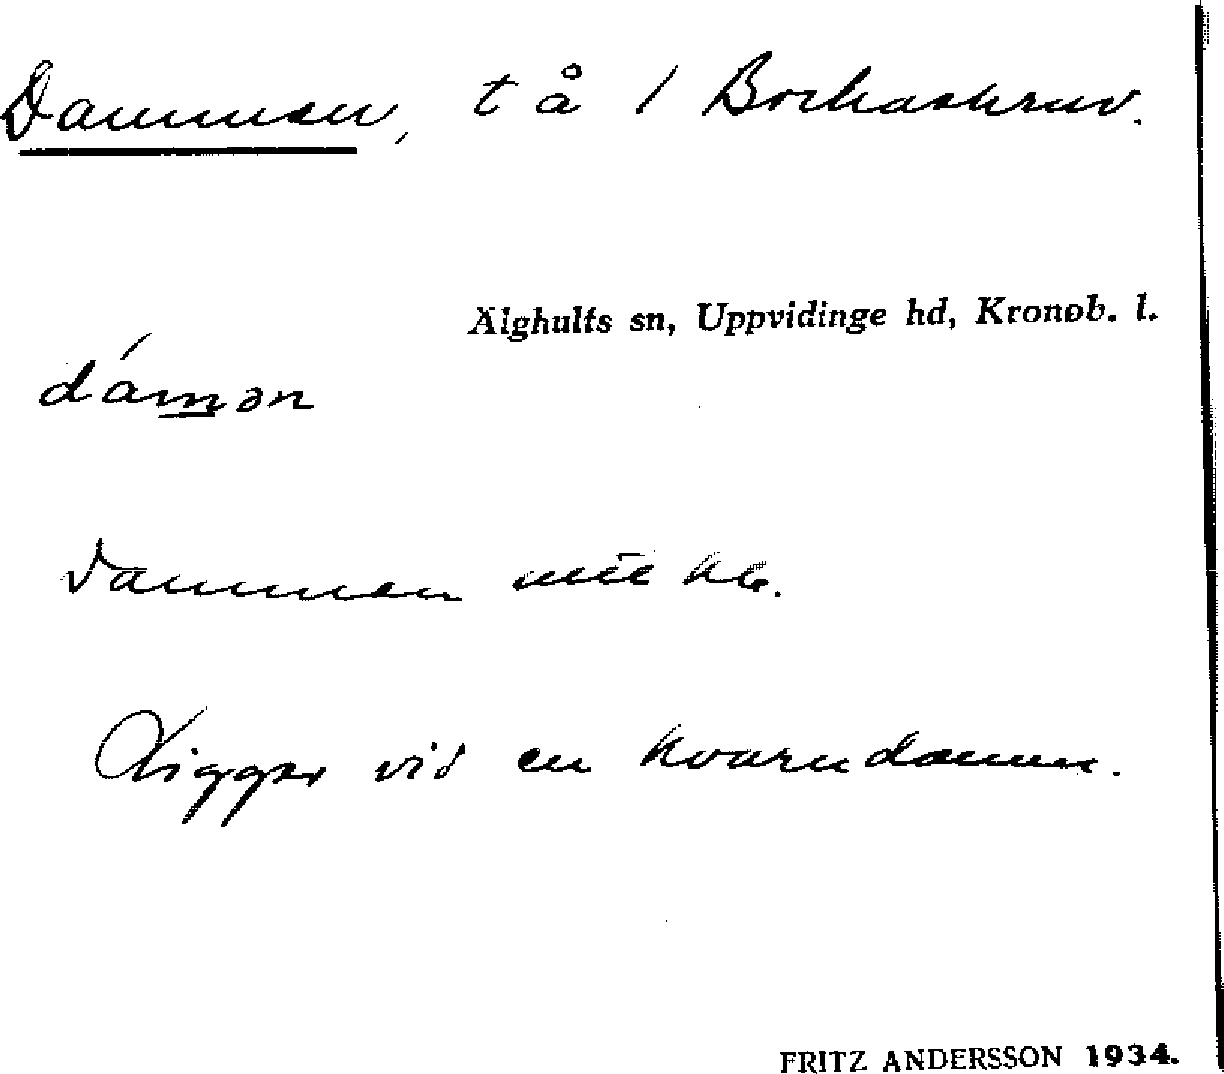 Dammen, t å 1 Bockaskruv.
Älghults sn, Uppvidinge hd, Kronob. l.
dámən
Dammen
Ligger vid en kvarndamm.
FRITZ ANDERSSON 1934.